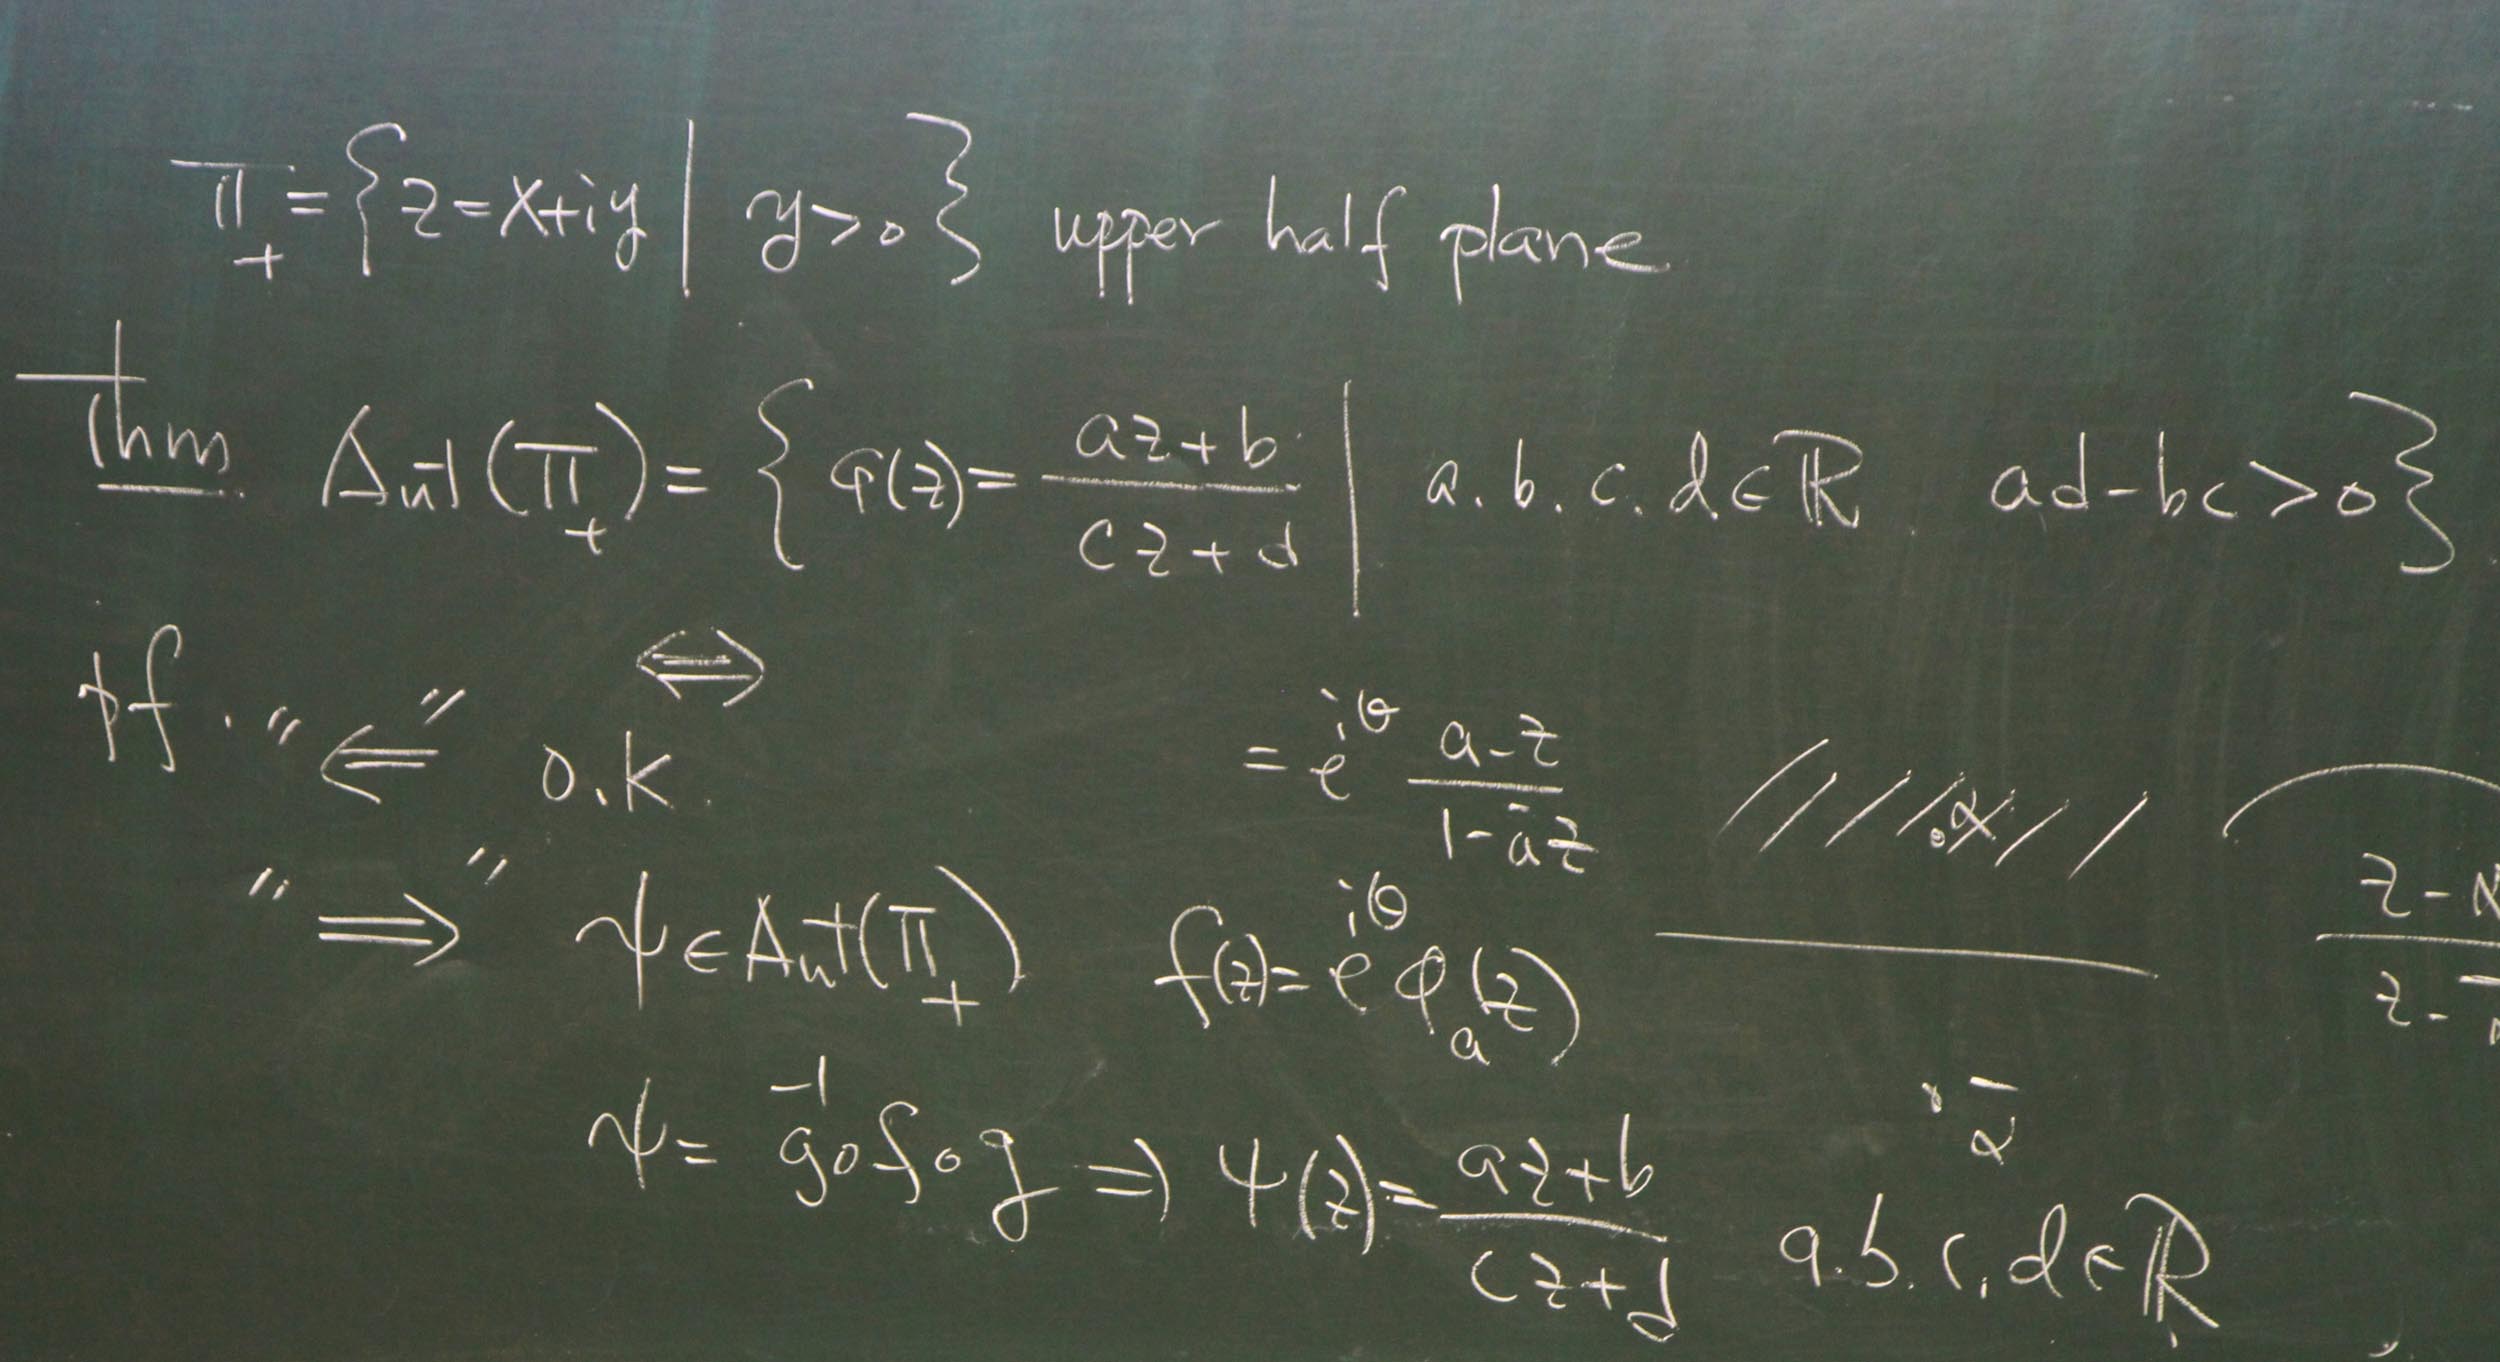 Π₊ = { z = x+iy | y > 0 } upper half plane
Thm Aut(Π₊) = { φ(z) = (az+b)/(cz+d) | a.b.c.d ∈ ℝ ad-bc > 0 }
⇔
pf. "⇐" o.k.
= e^{iθ} (a-z)/(1-āz)
α
"⇒" ψ ∈ Aut(Π₊) f(z) = e^{iθ} φ_a(z)
z-α
z-
ᾱ
ψ = g⁻¹∘f∘g ⇒ ψ(z) = (az+b)/(cz+d) a.b.c.d ∈ ℝ